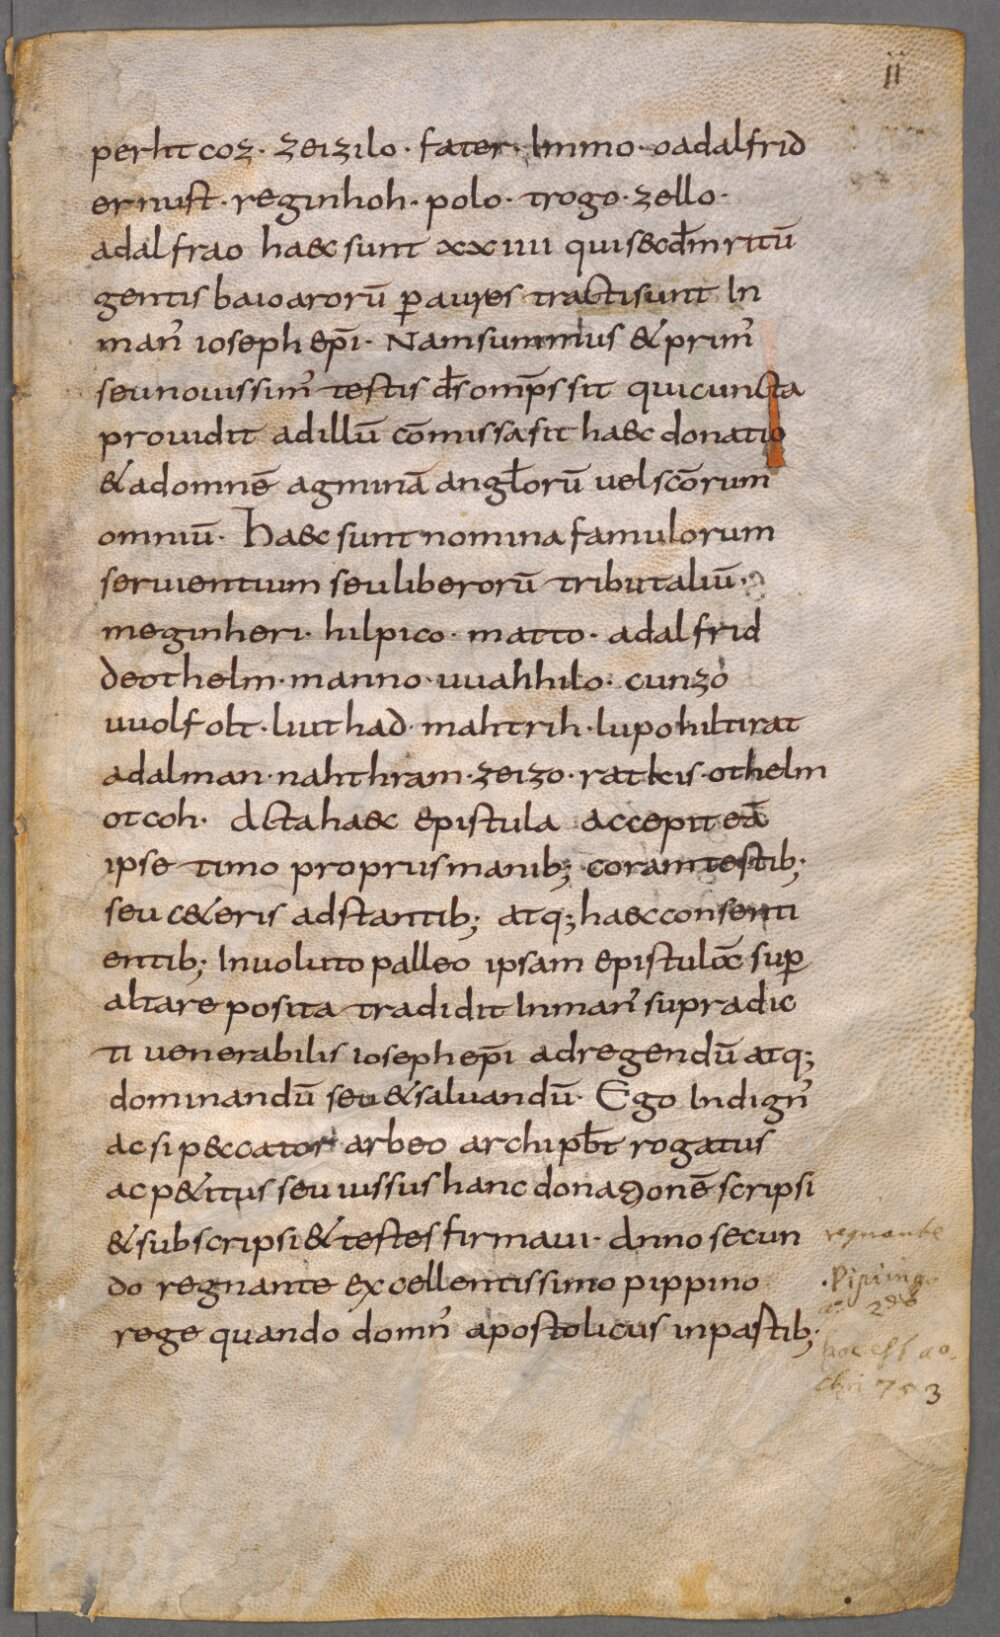 ii
perht coz· zeizilo· fater· Immo· oadalfrid
ernust· reginhoh· polo· trogo· zello·
adalfrao haec sunt xxiiii qui secdm ritū
gentis baioarorū p aures tracti sunt In
man᾿ ioseph ep̄i· Nam summus & prim᾿
seu nouissim᾿ testis d̄s omp̄s sit qui cuncta
prouidit ad illū cōmissa sit haec donatio
& ad omnē agminā angl̄orū uel scōrum
omniū· Haec sunt nomina famulorum
seruientium seu liberorū tributaliū·
meginheri· hilpico· matto· adalfrid
deothelm· manno· uuahhilo· cunzo
uuolfolt· liuthad· mahtrih· lupo hiltirat
adalman· nahthram· zeizo· ratkis· othelm
otcoh· Acta haec epistula accepit eā
ipse timo propriis manib; coram testib;
seu c&eris adstantib; atq; haec consenti
entib; Inuoluto palleo ipsam epistulā sup
altare posita tradidit In man᾿ supradic
ti uenerabilis ioseph ep̄i ad regendū atq;
dominandū seu & saluandū· Ego Indign᾿
ac si peccator arbeo archipb̄t rogatus
ac p&itus seu iussus hanc donationē scripsi
& subscripsi & testes firmaui· Anno secun
do regnante excellentissimo pippino
rege quando domn᾿ apostolicus in pastib;
regnante
·Pipino
hoc est ao.
Chri 753